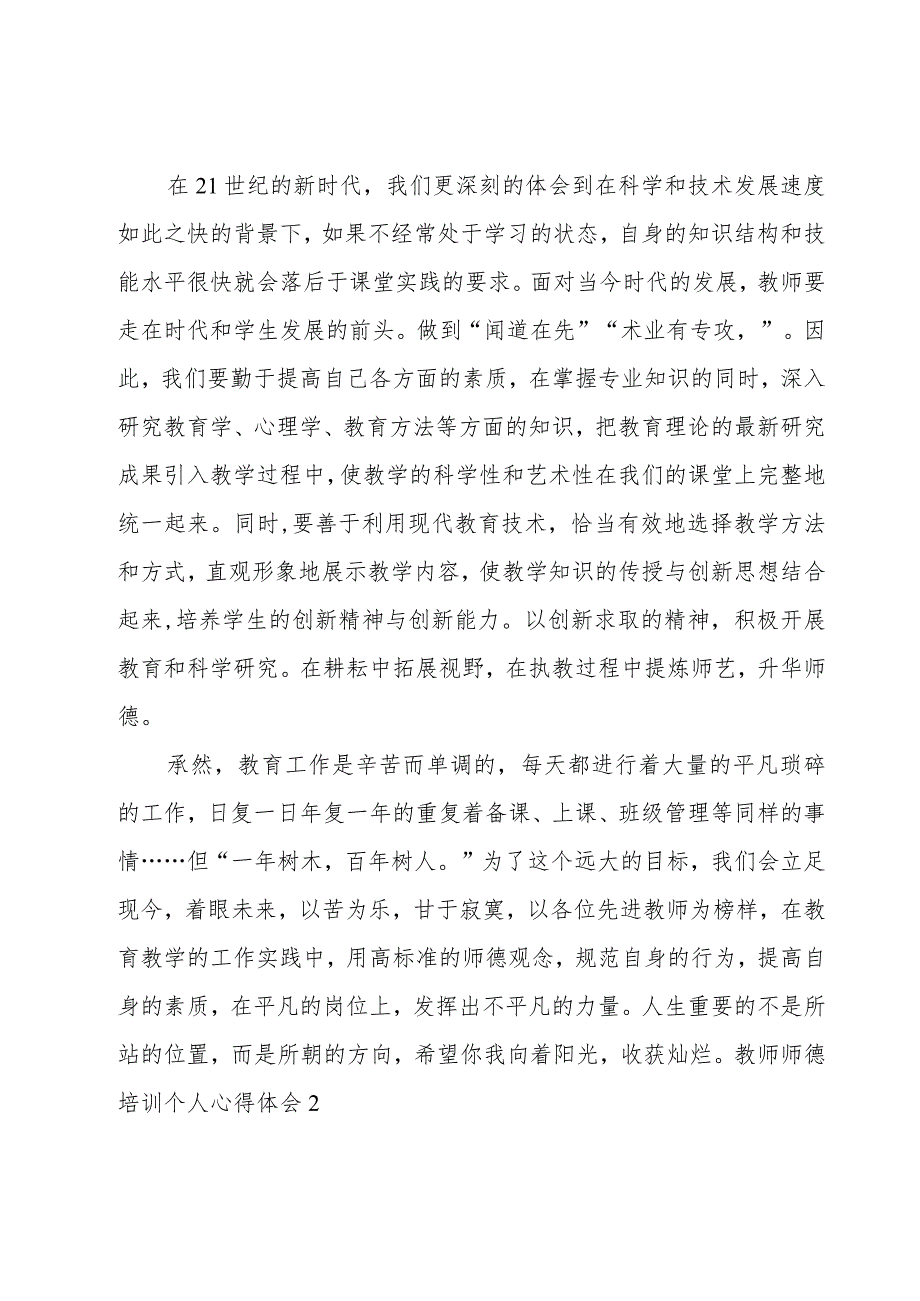 在21世纪的新时代，我们更深刻的体会到在科学和技术发展速度
如此之快的背景下，如果不经常处于学习的状态，自身的知识结构和技
能水平很快就会落后于课堂实践的要求。面对当今时代的发展，教师要
走在时代和学生发展的前头。做到“闻道在先”“术业有专攻，”。因
此，我们要勤于提高自己各方面的素质，在掌握专业知识的同时，深入
研究教育学、心理学、教育方法等方面的知识，把教育理论的最新研究
成果引入教学过程中，使教学的科学性和艺术性在我们的课堂上完整地
统一起来。同时,要善于利用现代教育技术，恰当有效地选择教学方法
和方式，直观形象地展示教学内容，使教学知识的传授与创新思想结合
起来,培养学生的创新精神与创新能力。以创新求取的精神，积极开展
教育和科学研究。在耕耘中拓展视野，在执教过程中提炼师艺，升华师
德。
承然，教育工作是辛苦而单调的，每天都进行着大量的平凡琐碎
的工作，日复一日年复一年的重复着备课、上课、班级管理等同样的事
情……但“一年树木，百年树人。”为了这个远大的目标，我们会立足
现今，着眼未来，以苦为乐，甘于寂寞，以各位先进教师为榜样，在教
育教学的工作实践中，用高标准的师德观念，规范自身的行为，提高自
身的素质，在平凡的岗位上，发挥出不平凡的力量。人生重要的不是所
站的位置，而是所朝的方向，希望你我向着阳光，收获灿烂。教师师德
培训个人心得体会2